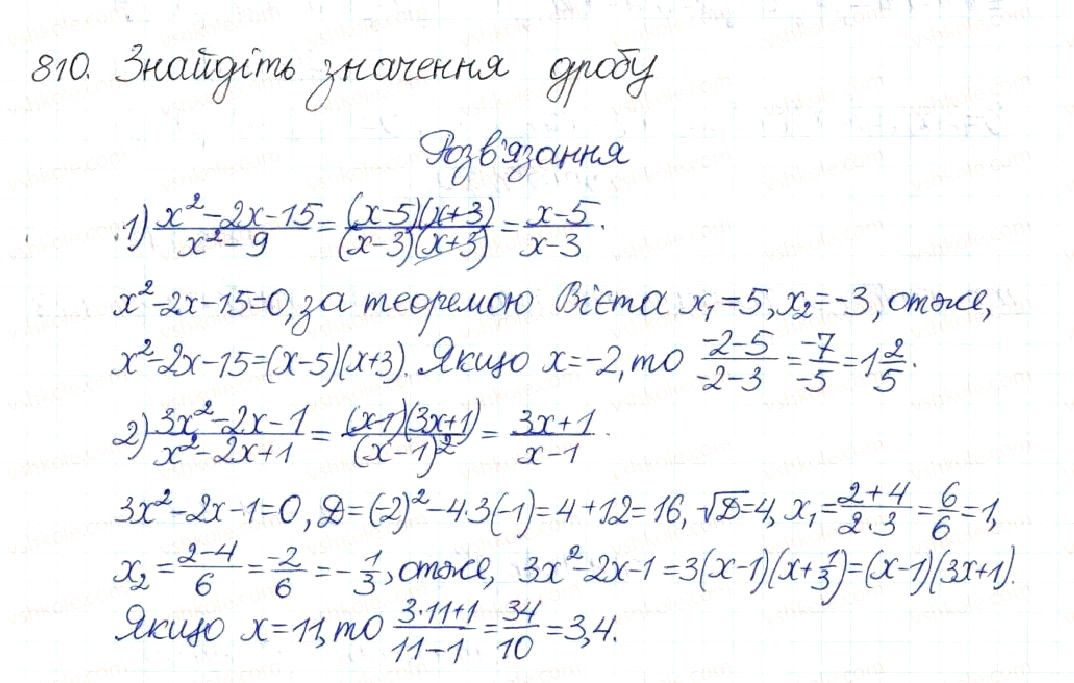 810. Знайдіть значення дробу
Розв'язання
1) (x²-2x-15)/(x²-9) = ((x-5)(x+3))/((x-3)(x+3)) = (x-5)/(x-3).
x²-2x-15=0, за теоремою Вієта x₁=5, x₂=-3, отже,
x²-2x-15=(x-5)(x+3). Якщо x=-2, то (-2-5)/(-2-3) = (-7)/(-5) = 1 2/5.
2) (3x²-2x-1)/(x²-2x+1) = ((x-1)(3x+1))/((x-1)²) = (3x+1)/(x-1).
3x²-2x-1=0, D=(-2)²-4·3(-1)=4+12=16, √D=4, x₁=(2+4)/(2·3)=6/6=1,
x₂=(2-4)/6=(-2)/6=-1/3, отже, 3x²-2x-1=3(x-1)(x+1/3)=(x-1)(3x+1).
Якщо x=11, то (3·11+1)/(11-1)=34/10=3,4.